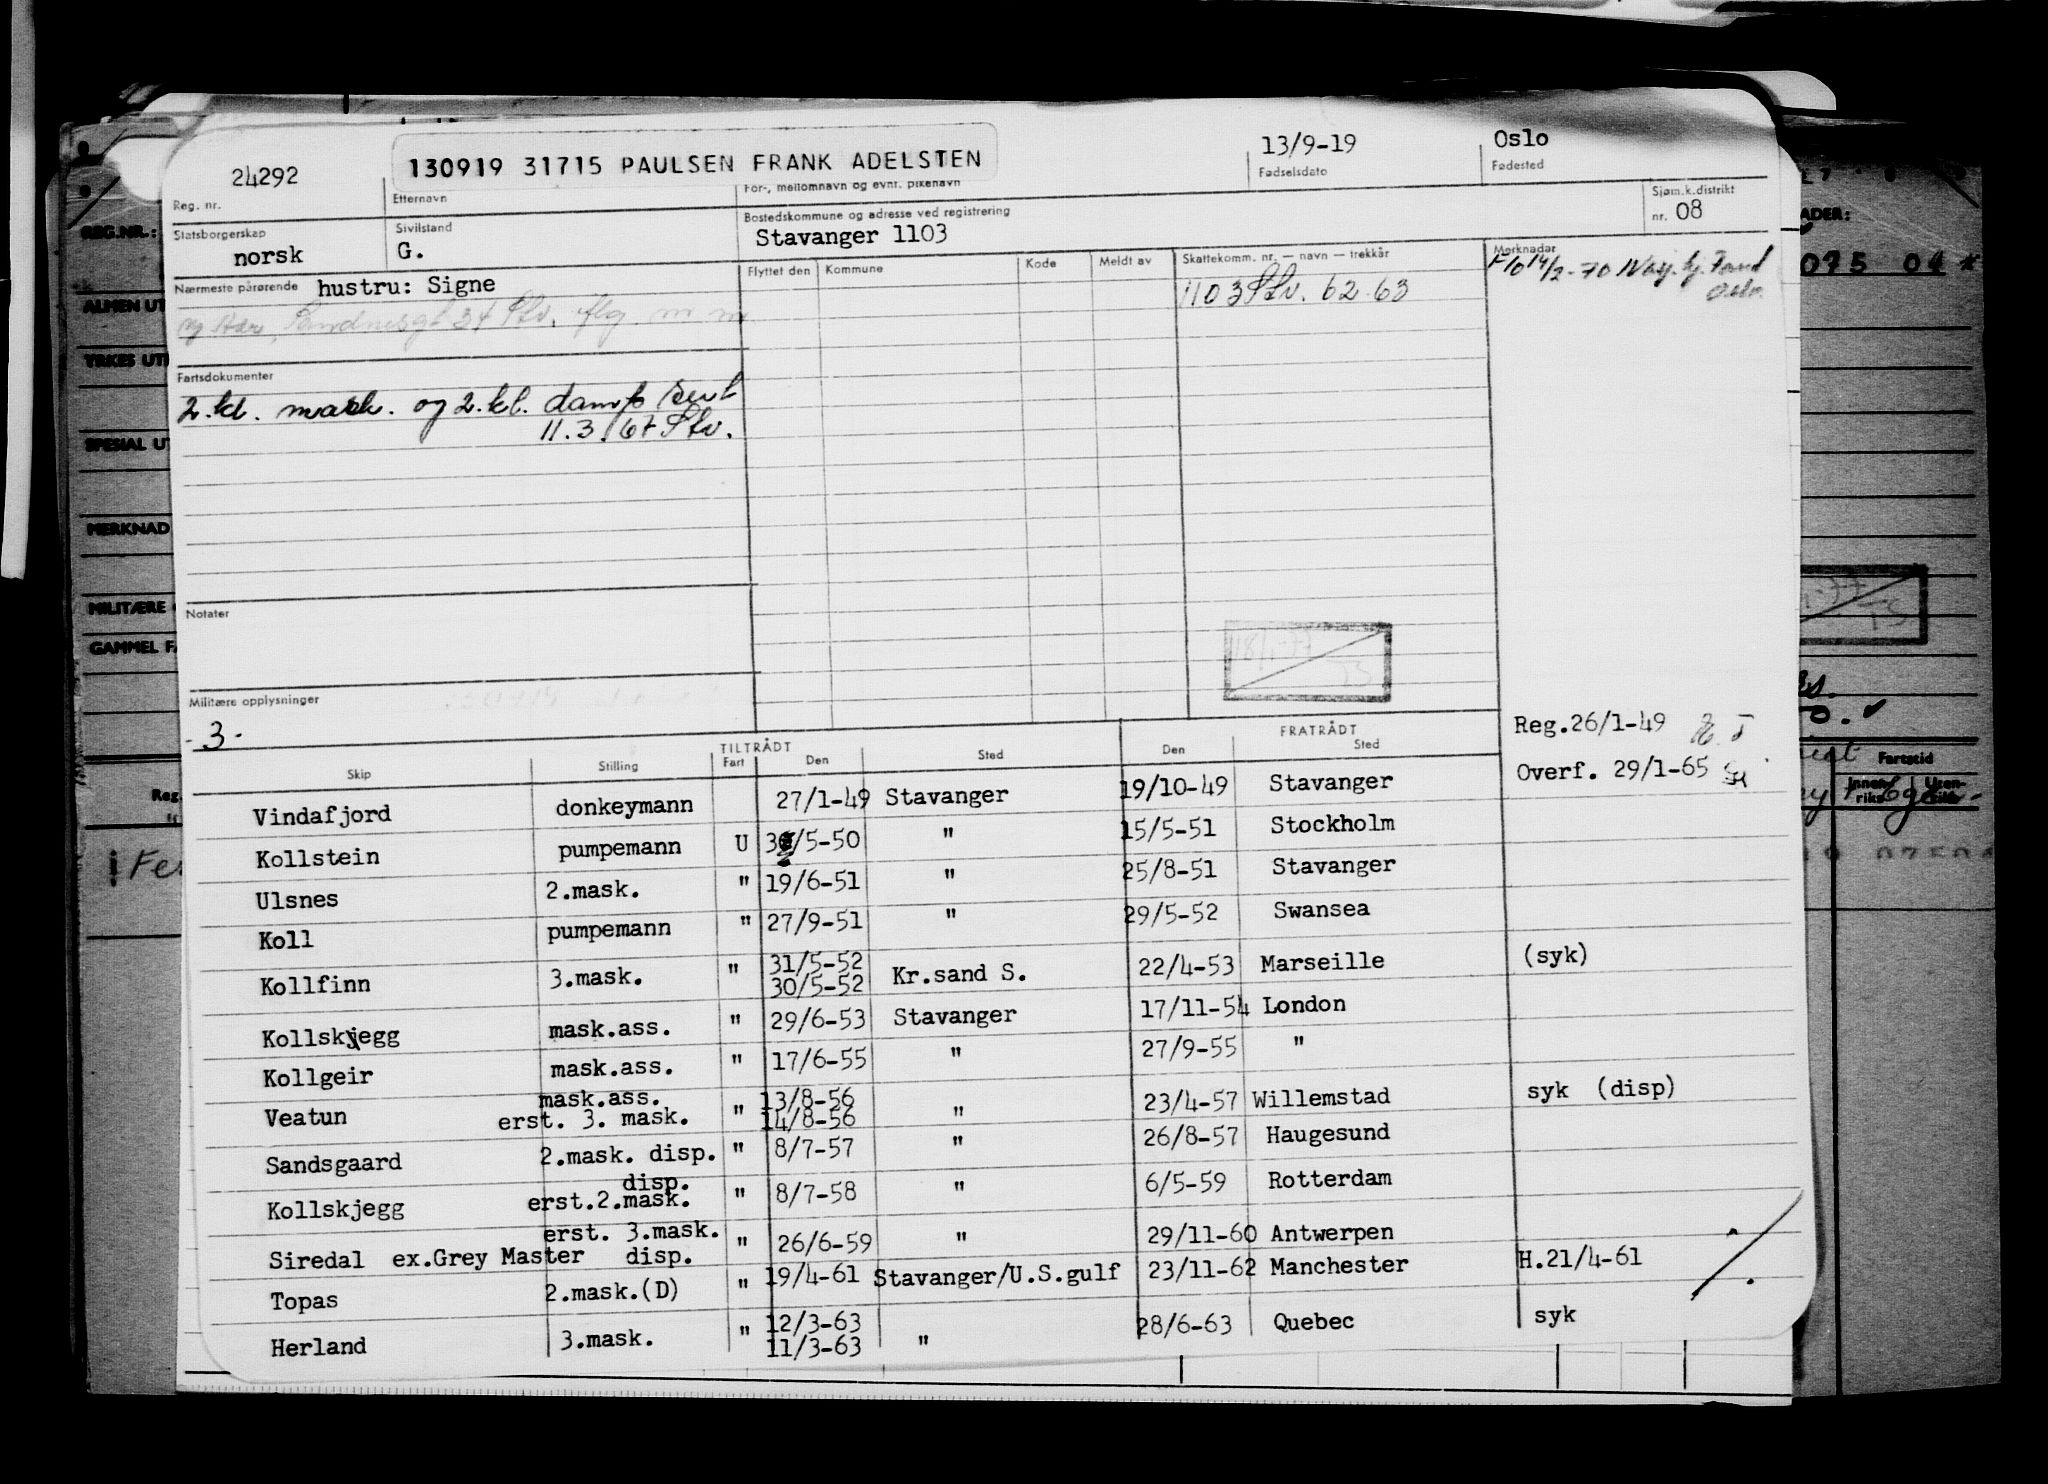 24292
130919 31715 PAULSEN FRANK ADELSTEN
13/9-19
Oslo
Reg. nr.
Etternavn
For-, mellomnavn og evnt. pikenavn
Fødselsdato
Fødested
Statsborgerskap
norsk
Sivilstand
G.
Bostedskommune og adresse ved registrering
Stavanger 1103
Sjøm.k.distrikt
nr. 08
Nærmeste pårørende hustru: Signe
Flyttet den Kommune Kode Meldt av Skattekomm. nr. — navn — trekkår Merknader
1103 Stv. 62-63
14/2-70
Fartsdokumenter
2.kl. mask. og 2.kl. damp sert
11.3.67 Stv.
Notater
Militære opplysninger
-3-
Reg.26/1-49
Overf. 29/1-65
TILTRÅDT FRATRÅDT
Skip Stilling Fart Den Sted Den Sted
Vindafjord donkeymann 27/1-49 Stavanger 19/10-49 Stavanger
Kollstein pumpemann U /5-50 " 15/5-51 Stockholm
Ulsnes 2.mask. " 19/6-51 " 25/8-51 Stavanger
Koll pumpemann " 27/9-51 " 29/5-52 Swansea
Kollfinn 3.mask. " 31/5-52 30/5-52 Kr.sand S. 22/4-53 Marseille (syk)
Kollskjegg mask.ass. " 29/6-53 Stavanger 17/11-54 London
Kollgeir mask.ass. " 17/6-55 " 27/9-55 "
mask.ass. 13/8-56
Veatun erst. 3. mask. " 14/8-56 " 23/4-57 Willemstad syk (disp)
Sandsgaard 2.mask. disp. " 8/7-57 " 26/8-57 Haugesund
disp.
Kollskjegg erst.2.mask. " 8/7-58 " 6/5-59 Rotterdam
erst. 3.mask.
Siredal ex.Grey Master disp. " 26/6-59 " 29/11-60 Antwerpen
Topas 2.mask.(D) " 19/4-61 Stavanger/U.S.gulf 23/11-62 Manchester H.21/4-61
12/3-63
Herland 3.mask. " 11/3-63 " 28/6-63 Quebec syk
REG.NR.:
ALMEN UT
YRKES UT
SPESIAL UT
MERKNAD
MILITÆRE
GAMMEL FA
Reg.
ADER:
075 04 *
Fartstid
Innenriks
Utenriks